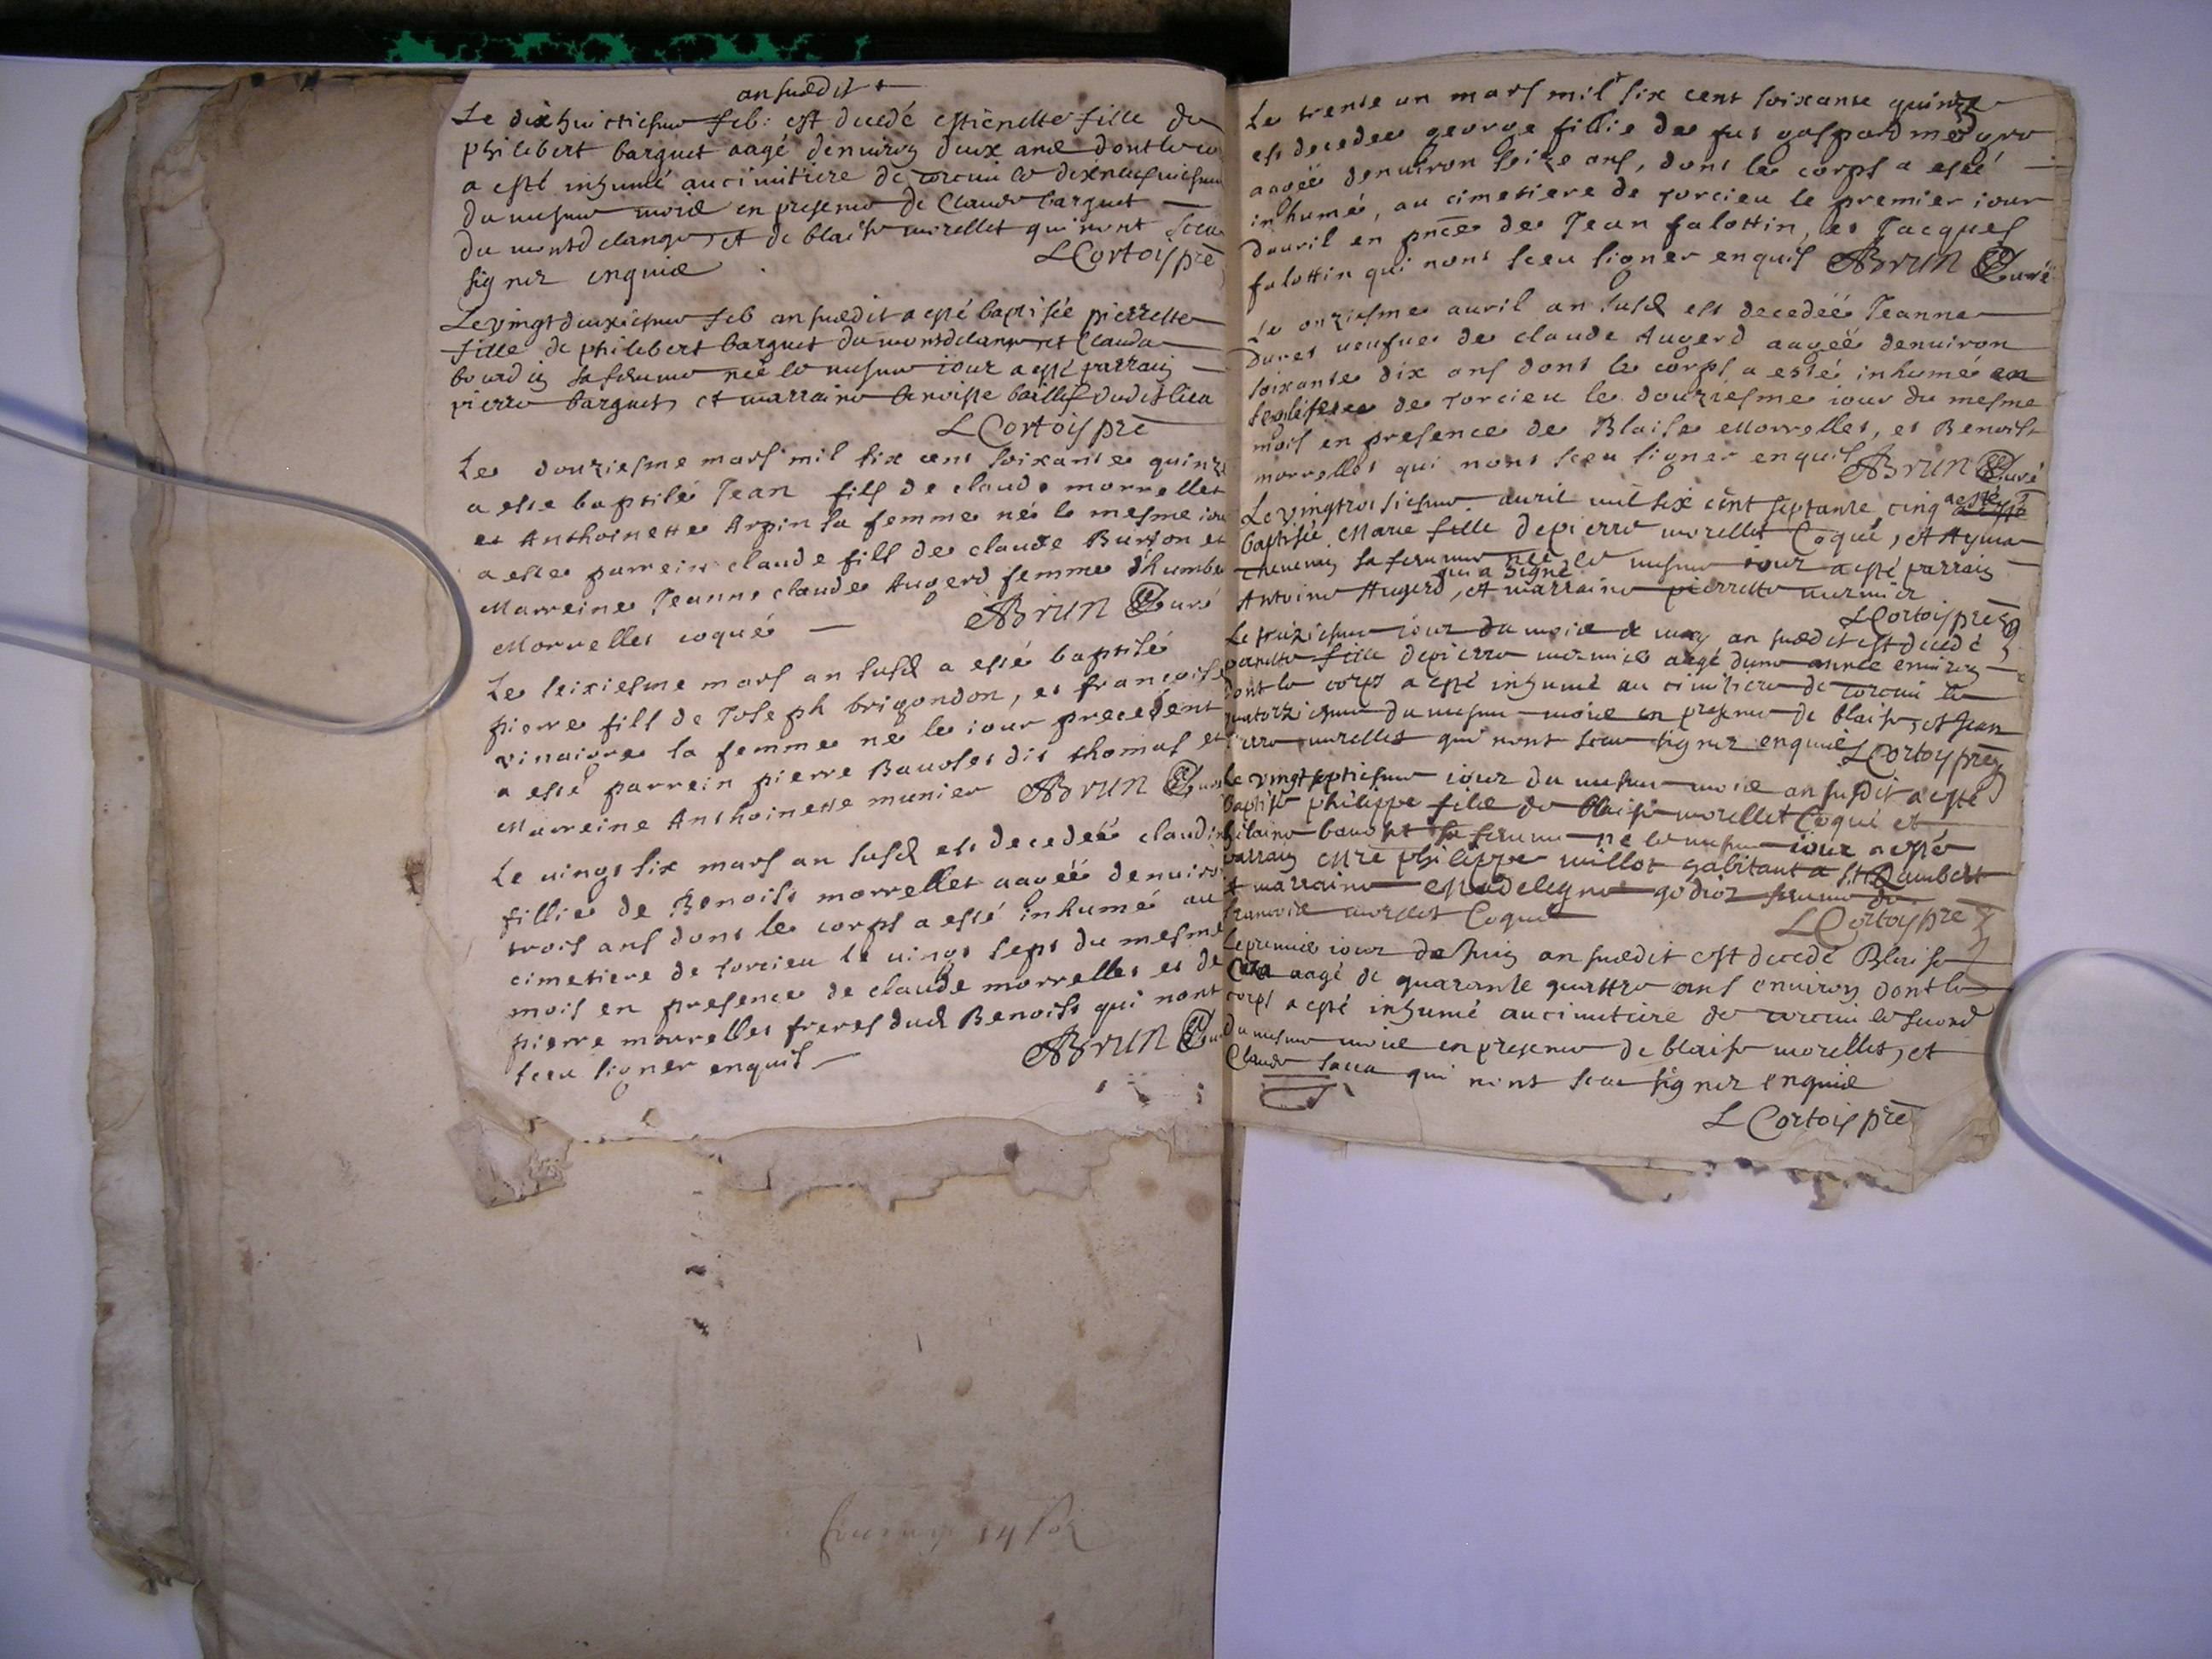 an susdit
Le dixhuictiesme feb: est decedé estienette fille de
philibert barquet aagé denuiron deux ans dont le co
a esté inhumé au cimitiere de torcieu le dixneufuiesme
du mesme mois en presence de Claude barquet
du montdelange, et de blaise morellet qui nont sceu
signer enquis
L Cortois pre
Le vingtdeuxiesme feb an susdit a esté baptisée pierrette
fille de philibert barquet du montdelange, et Clauda
bourdin sa femme née le mesme iour a esté parrain
pierre barquet, et marraine benoiste baillif dudit lieu
L Cortois pre
Le douziesme mars mil six cens soixante quinze
a este baptisé Jean fils de claude morrellet
et Anthoinette Arpin sa femme né le mesme iour
a este parrein claude fils de claude Burson et
Marreine Jeanne claude Augerd femme d'humbe
Morrellet coqué
ABrun Curé
Le seixiesme mars an susd a esté baptisé
pierre fils de Joseph brigondon, et francoise
vinaigre sa femme né le iour precedent
a esté parrein pierre Bauoset dit thomas et
Marreine Anthoinette munier ABrun Curé
Le uingt six mars an susd est decedeé claudine
fillie de Benoist morrellet aageé denuiron
trois ans dont le corps a esté inhumé au
cimetiere de torcieu le uingt sept du mesme
mois en presence de claude morrellet et de
pierre morrellet freres dud Benoist qui nont
sceu signer enquis
ABrun Curé
Le trente un mars mil six cent soixante quinze
est decedee george fillie de fut gaspard
aageé denuiron seize ans, dont le corps a esté
inhumé, au cimetiere de torcieu le premier iour
dauril en pnce de Jean falottin, et Jacques
falottin qui nont sceu signer enquis ABrun Curé
Le onziesme auril an susd est decedeé Jeanne
Duret ueufue de claude Augerd aageé denuiron
soixante dix ans dont le corps a esté inhumé en
leglise de torcieu le douziesme iour du mesme
mois en presence de Blaise Morrellet, et Benoist
morrellet qui nont sceu signer enquis ABrun Curé
Le vingtroisiesme auril mil six cent septante cinq a esté
baptisée Marie fille de pierre morellet Coqué, et Ayma
thevenin sa femme née le mesme iour a esté parrain
qui a signé
Antoine Augerd, et marraine pierrette mermier
L Cortois pre
Le treiziesme iour du mois de may an susdit est decedé
fille de pierre mermier aagé dune année enuiron
dont le corps a esté inhumé au cimitiere de torcieu le
quatorziesme du mesme mois en presence de blaise, et Jean
pierre morellet qui nont sceu signer enquis L Cortois pre
Le vingtseptiesme iour du mesme mois an susdit a esté
baptisé philippe filz de blaise morellet Coqué et
sa femme né le mesme iour a esté
parrain Mre philippe millot habitant a St Rambert
et marraine Madeleyne godioz femme de
francois morellet Coqué
L Cortois pre
Le premier iour de Juin an susdit est decedé Blaise
aagé de quarante quattre ans enuiron dont le
corps a esté inhumé au cimitiere de torcieu le second
du mesme mois en presence de blaise morellet, et
Claude sacca qui nont sceu signer enquis
L Cortois pre